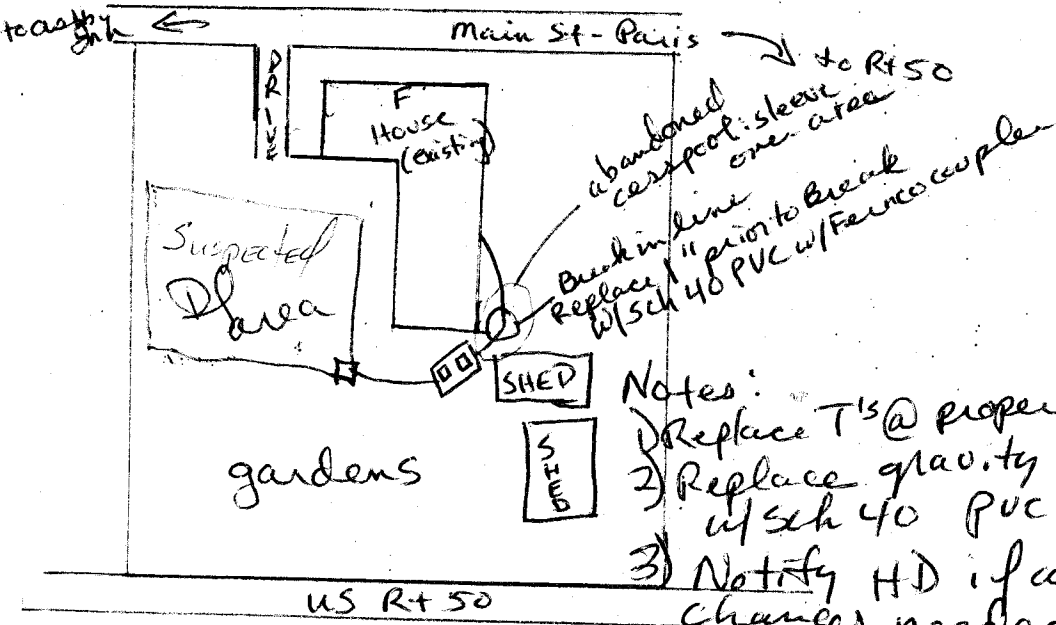 to Ashby
Inn
Main St - Paris
to Rt 50
DRIVE
F
House
(existing)
abandoned
cesspool: sleeve
over area
Break in line
Replace 1" prior to Break
w/ Sch 40 PVC w/ Fernco coupler
Suspected
Df area
SHED
SHED
gardens
Notes:
1) Replace T's @ proper
2) Replace gravity
w/ Sch 40 PVC
3) Notify HD if
changes
US Rt 50